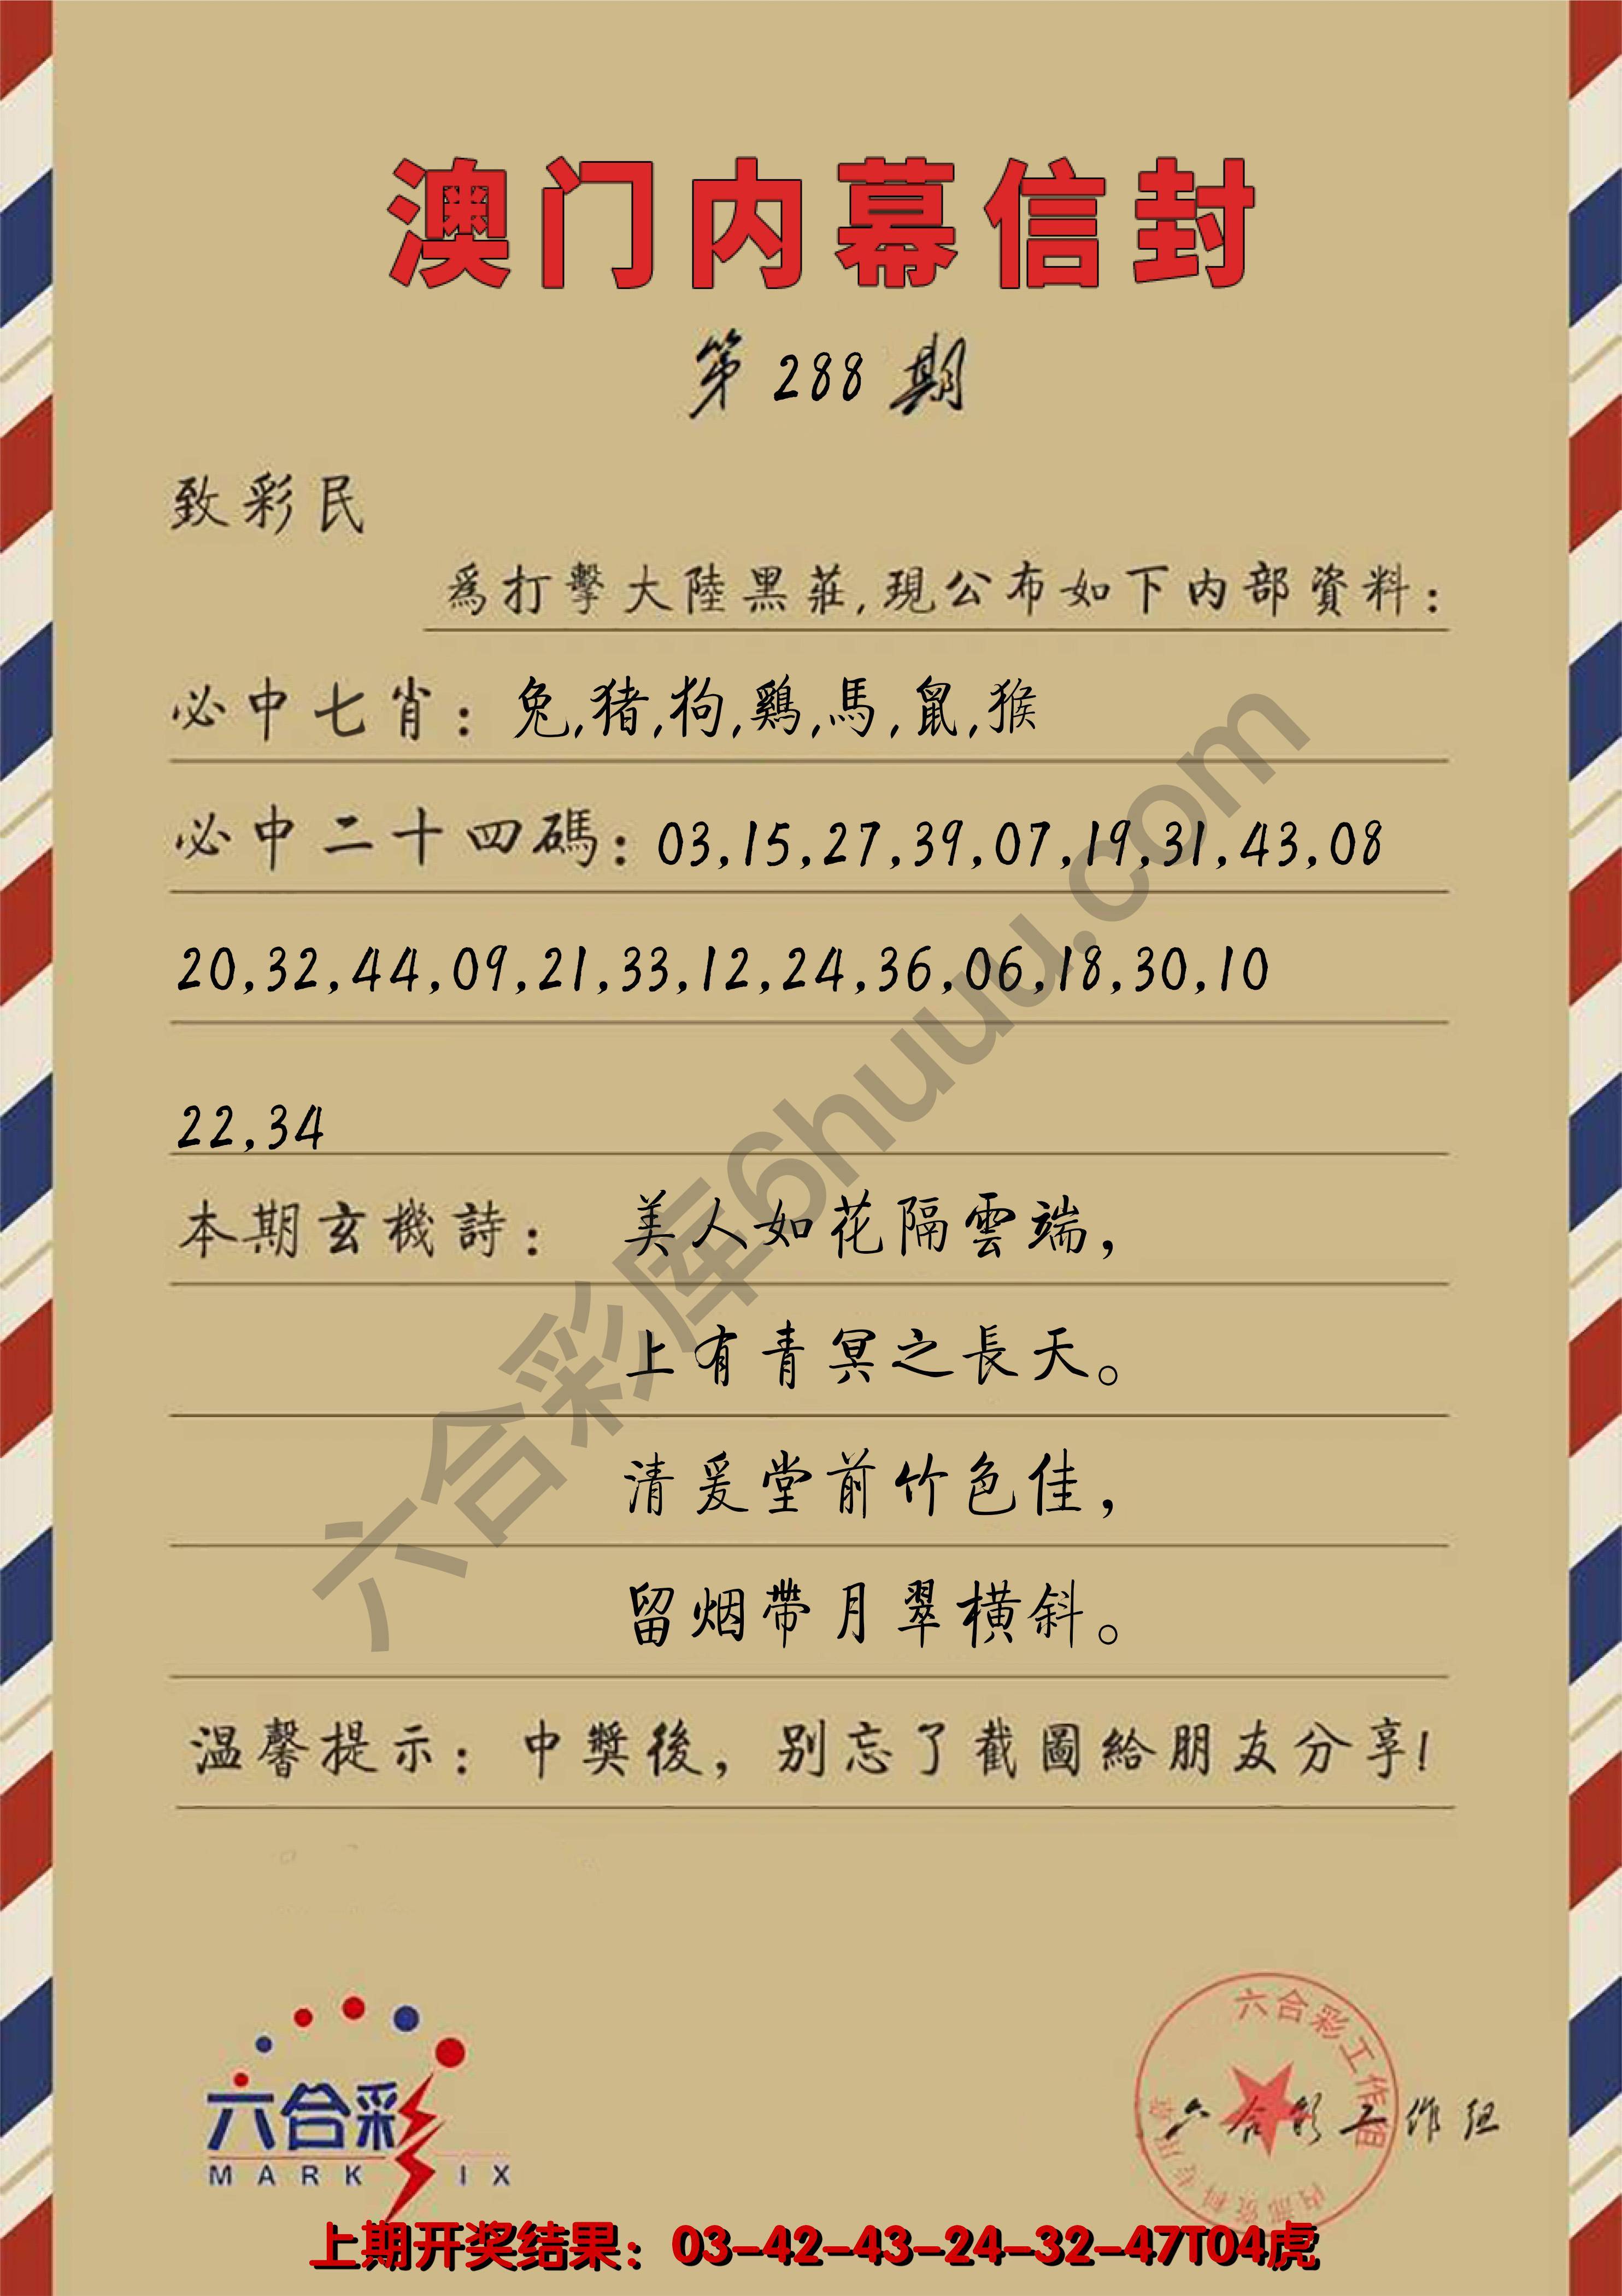 澳门内幕信封
第 288 期
致彩民
爲打擊大陸黑莊,現公布如下内部資料:
必中七肖: 兔,猪,狗,鷄,馬,鼠,猴
必中二十四碼: 03,15,27,39,07,19,31,43,08
20,32,44,09,21,33,12,24,36,06,18,30,10
22,34
本期玄機詩: 美人如花隔雲端,
上有青冥之長天。
清爰堂前竹色佳,
留烟帶月翠橫斜。
温馨提示: 中獎後, 别忘了截圖給朋友分享!
六合彩库6huuu.com
六合彩
MARK IX
六合彩工作组
内部资料专用章
六合彩工作组
上期开奖结果: 03-42-43-24-32-47T04虎